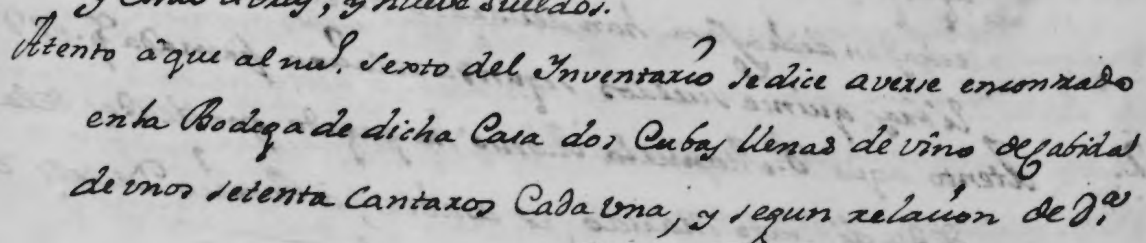 y nueve sueldos.
Atento âque al nuḿ. Sexto del Inventario se dice averse encontrado
en la Bodega de dicha Casa dos Cubas llenas de vino de Cabida
de unos setenta Cantaros Cada una, y segun relacion de D.ª